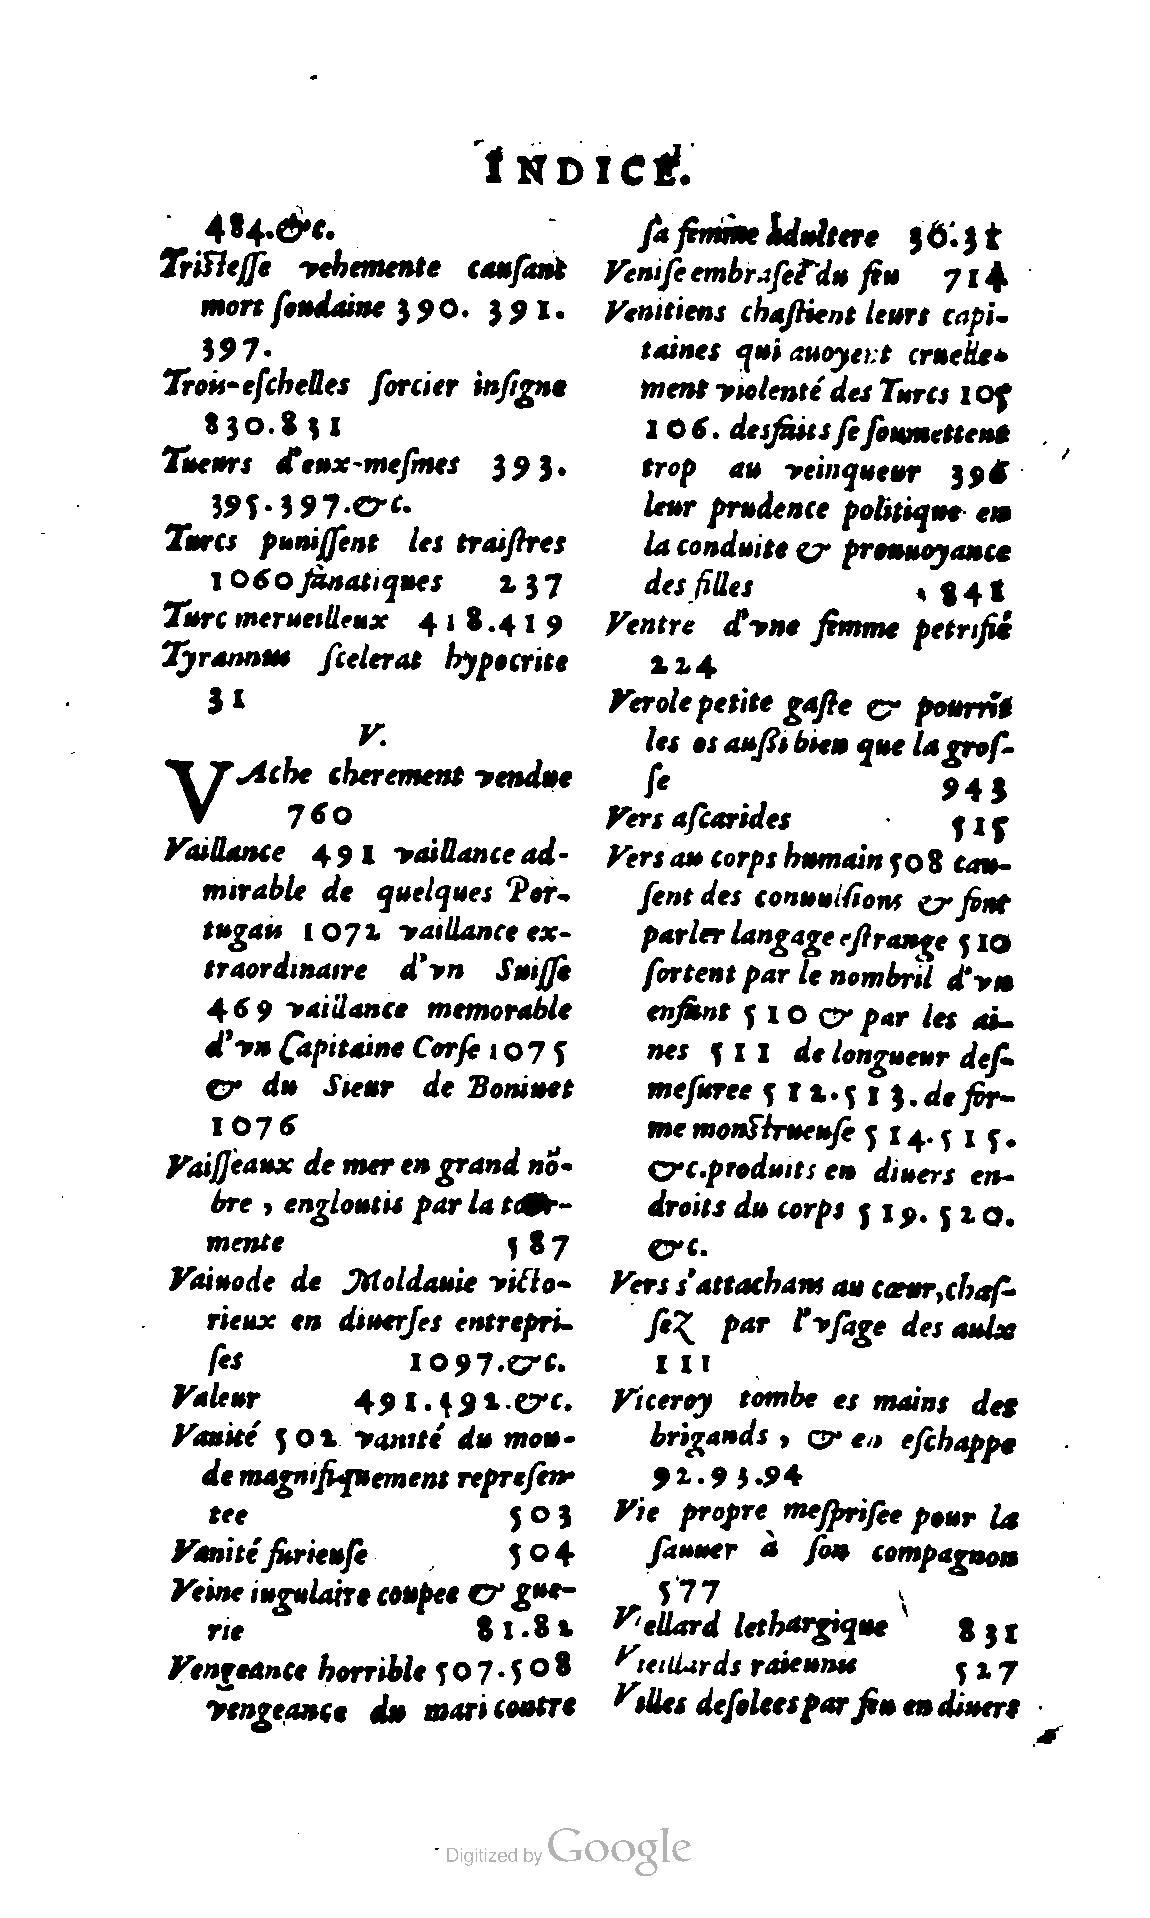 INDICE.
484.&c.
Tristesse vehemente causant
mort soudaine 390. 391.
397.
Trois-eschelles sorcier insigne
830.831
Tueurs d'eux-mesmes 393.
395.397.&c.
Turcs punissent les traistres
1060 fanatiques 237
Turc merueilleux 418.419
Tyrannus scelerat hypocrite
31
V.
VAche cherement vendue
760
Vaillance 491 vaillance ad-
mirable de quelques Por-
tugais 1072 vaillance ex-
traordinaire d'vn Suisse
469 vaillance memorable
d'vn Capitaine Corse 1075
& du Sieur de Boniuet
1076
Vaisseaux de mer en grand nõ-
bre, engloutis par la tour-
mente 587
Vaiuode de Moldauie victo-
rieux en diuerses entrepri-
ses 1097.&c.
Valeur 491.492.&c.
Vanité 502 vanité du mon-
de magnifiquement represen-
tee 503
Vanité furieuse 504
Veine iugulaire coupee & gue-
rie 81.82
Vengeance horrible 507.508
vengeance du mari contre
sa femme adultere 36.
Venise embrasee du feu 714
Venitiens chastient leurs capi-
taines qui auoyent cruelle-
ment violenté des Turcs 105
106. desfaits se soumettent
trop au veinqueur 396
leur prudence politique en
la conduite & prouuoyance
des filles 848
Ventre d'vne femme petrifié
224
Verole petite gaste & pourrit
les os aussi bien que la gros-
se 943
Vers ascarides 515
Vers au corps humain 508 cau-
sent des conuulsions & font
parler langage estrange 510
sortent par le nombril d'vn
enfant 510 & par les ai-
nes 511 de longueur des-
mesuree 512.513. de for-
me monstrueuse 514.515.
&c. produits en diuers en-
droits du corps 519. 520.
&c.
Vers s'attachans au cœur, chas-
sez par l'vsage des aulx
111
Viceroy tombe es mains des
brigands, & en eschappe
92.93.94
Vie propre mesprisee pour la
sauuer à son compagnon
577
Viellard lethargique 831
Vieillards raieunis 527
Villes desolees par feu en diuers
Digitized by Google